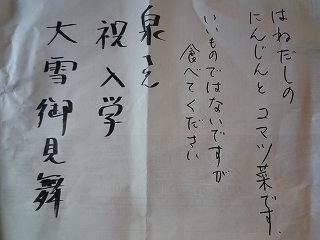 はねだしの
にんじんとコマツ菜です.
いいものではないですが
食べてください
泉さん
祝入学
大雪御見舞